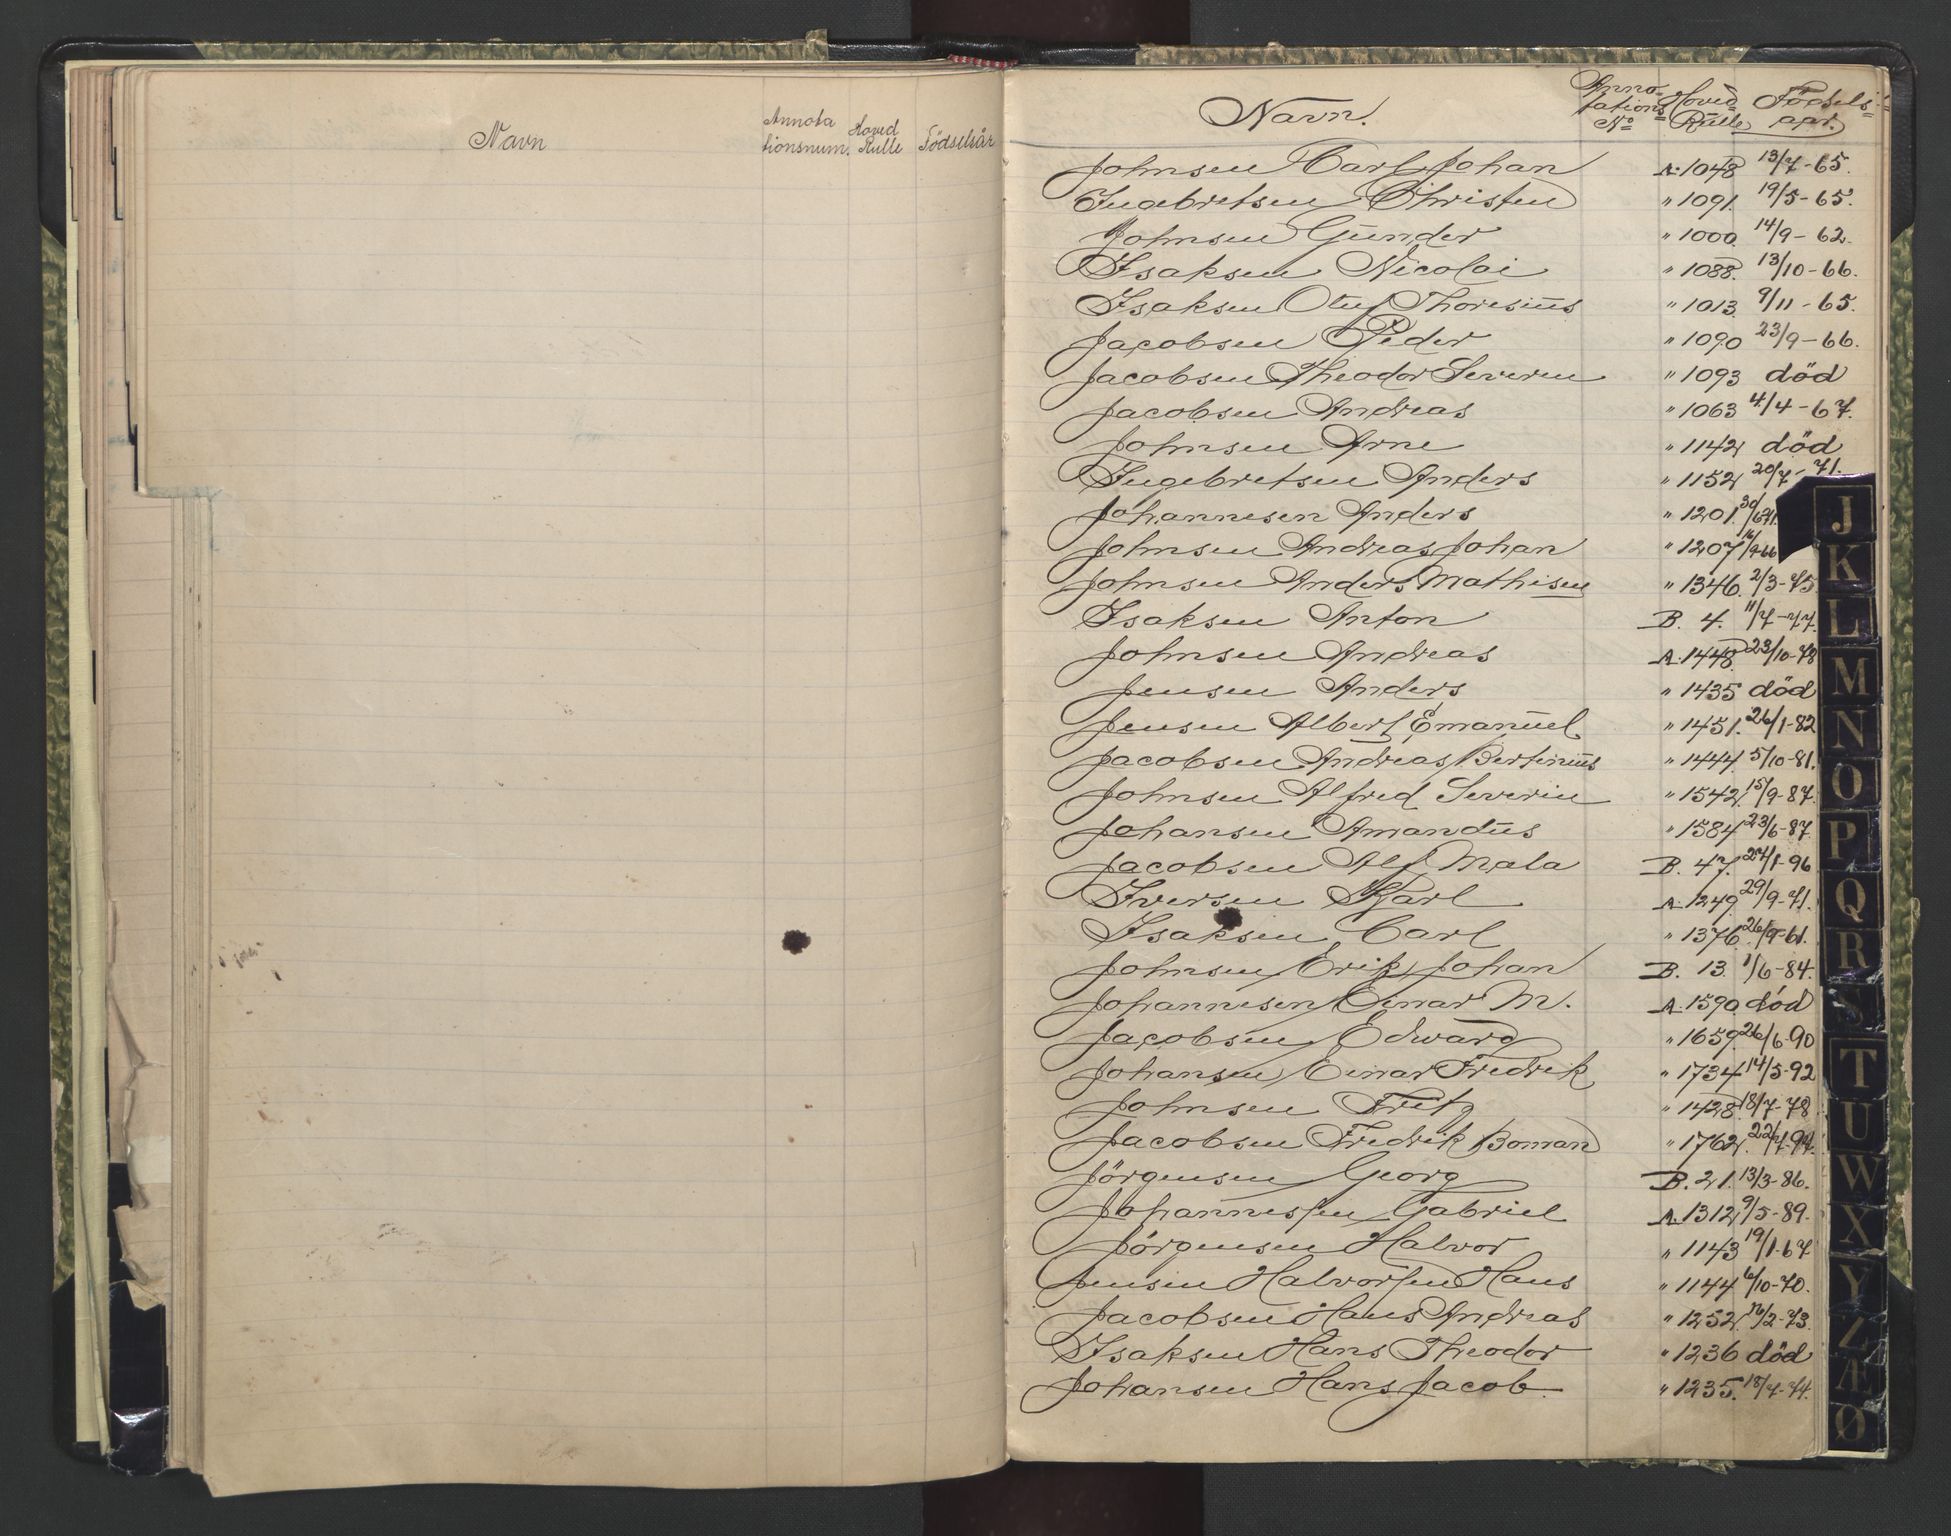 Navn
Annota
tionsnum.
Hoved
Rulle
Födselsår
Navn.
Anno-
tations
No
Hoved
Rulle
Födsels-
aar.
Johnsen Carl Johan A. 1048 13/7-65.
Ingebretsen Christen " 1091. 19/5-65.
Johnsen Gunder " 1000. 14/9-62.
Isaksen Nicolai " 1088. 13/10-66.
Isaksen Oluf Thoresius " 1013. 9/11-65.
Jacobsen Peder " 1090 23/9-66.
Jacobsen Theodor Severin " 1093 död
Jacobsen Andreas " 1063 4/4-67.
Johnsen Arne " 1142 död
Ingebretsen Anders " 1152 20/7-71.
Johannesen Anders " 1201. 30/6
Johnsen Andreas Johan " 1207
Johnsen Anders Mathisen " 1346. 2/3-75.
Isaksen Anton B. 4. 11/7-77.
Johnsen Andreas A. 1448. 23/10-78
Jensen Anders " 1435 död
Jensen Albert Emanuel " 1451. 26/1-82
Jacobsen Andreas Bertinius " 1444. 5/10-81.
Johnsen Alfred Severin " 1542. 15/9-87.
Johansen Amandus " 1584 23/6-87.
Jacobsen Alf Mala B. 47. 24/1-96
Iversen Karl A. 1249. 29/9-71.
Isaksen Carl " 1376. 26/9-61.
Johnsen Erik Johan B. 13. 1/6-84.
Johannesen Einar M. A. 1590 död
Jacobsen Edward " 1659. 26/6-90
Johansen Einar Fredrik " 1734 14/5-92
Johnsen Fritz " 1428. 18/7-78
Jacobsen Fredrik Boman " 1762.
Jörgensen Georg B. 21. 13/3-86.
Johannessen Gabriel A. 1312 9/5-89.
Jörgensen Halvor " 1143 19/1-67
Jensen Halvorsen Hans " 1144 6/10-70.
Jacobsen Hans Andreas " 1252. 16/2-73.
Isaksen Hans Theodor " 1236 död
Johansen Hans Jacob. " 1235. 18/7-74.
J
K
L
M
N
O
P
Q
R
S
T
U
W
X
Y
Z
Æ
Ø